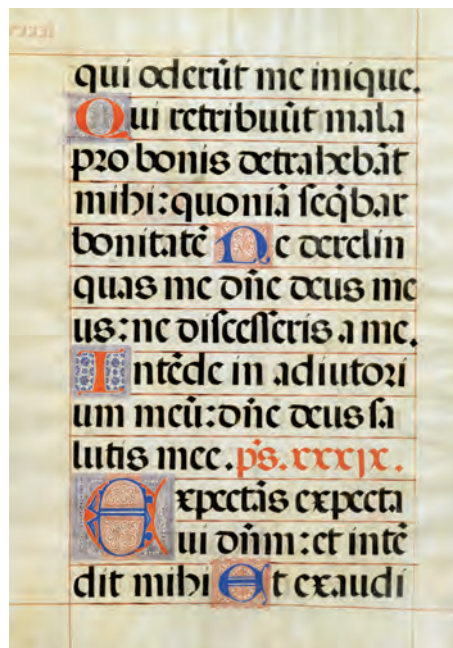 qui oderūt me inique.
Qui retribuūt mala
pro bonis detrahebāt
mihi: quoniā seq̄bar
bonitatē Ne derelin
quas me dn̄e deus me
us: ne discesseris a me.
Intēde in adiutori
um meū: dn̄e deus sa
lutis mee. ps. xxxix.
Expectās expecta
ui dn̄m: et intē
dit mihi Et exaudi